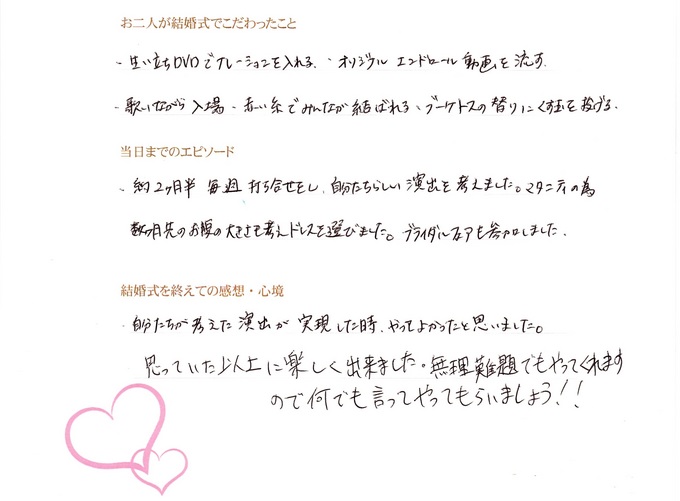 お二人が結婚式でこだわったこと
・生い立ちDVDでナレーションを入れる。・オリジナル エンドロール 動画を流す。
・歌いながら入場・赤い糸でみんなが結ばれる・ブーケトスの替りにくす玉を投げる。
当日までのエピソード
・約2ヶ月半 毎週 打ち合せをし、自分たちらしい演出を考えました。マタニティの為
数ヶ月先のお腹の大きさを考えドレスを選びました。ブライダルフェアも参加しました。
結婚式を終えての感想・心境
・自分たちが考えた演出が実現した時、やってよかったと思いました。
思っていた以上に楽しく出来ました。無理難題でもやってくれます
ので何でも言ってやってもらいましょう!!